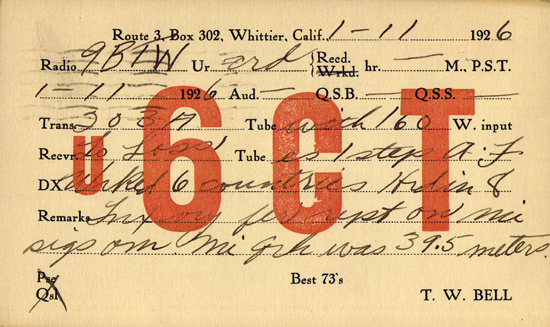 Route 3, Box 302, Whittier, Calif. 1-11 1926
Radio 9BIW Ur crd {Recd. Wrkd. hr. — M., P.S.T.
1-11 1926 Aud. — Q.S.B. — Q.S.S. —
Trans. 203A Tube with 160 W. input
Recvr. Lo Loss Tube es 1 step A.F.
DX Wrked 6 countries
Remarks fer rpt on mi
sigs om. Mi was 39.5 meters.
u 6CT
Pse Qsl
Best 73's
T. W. BELL